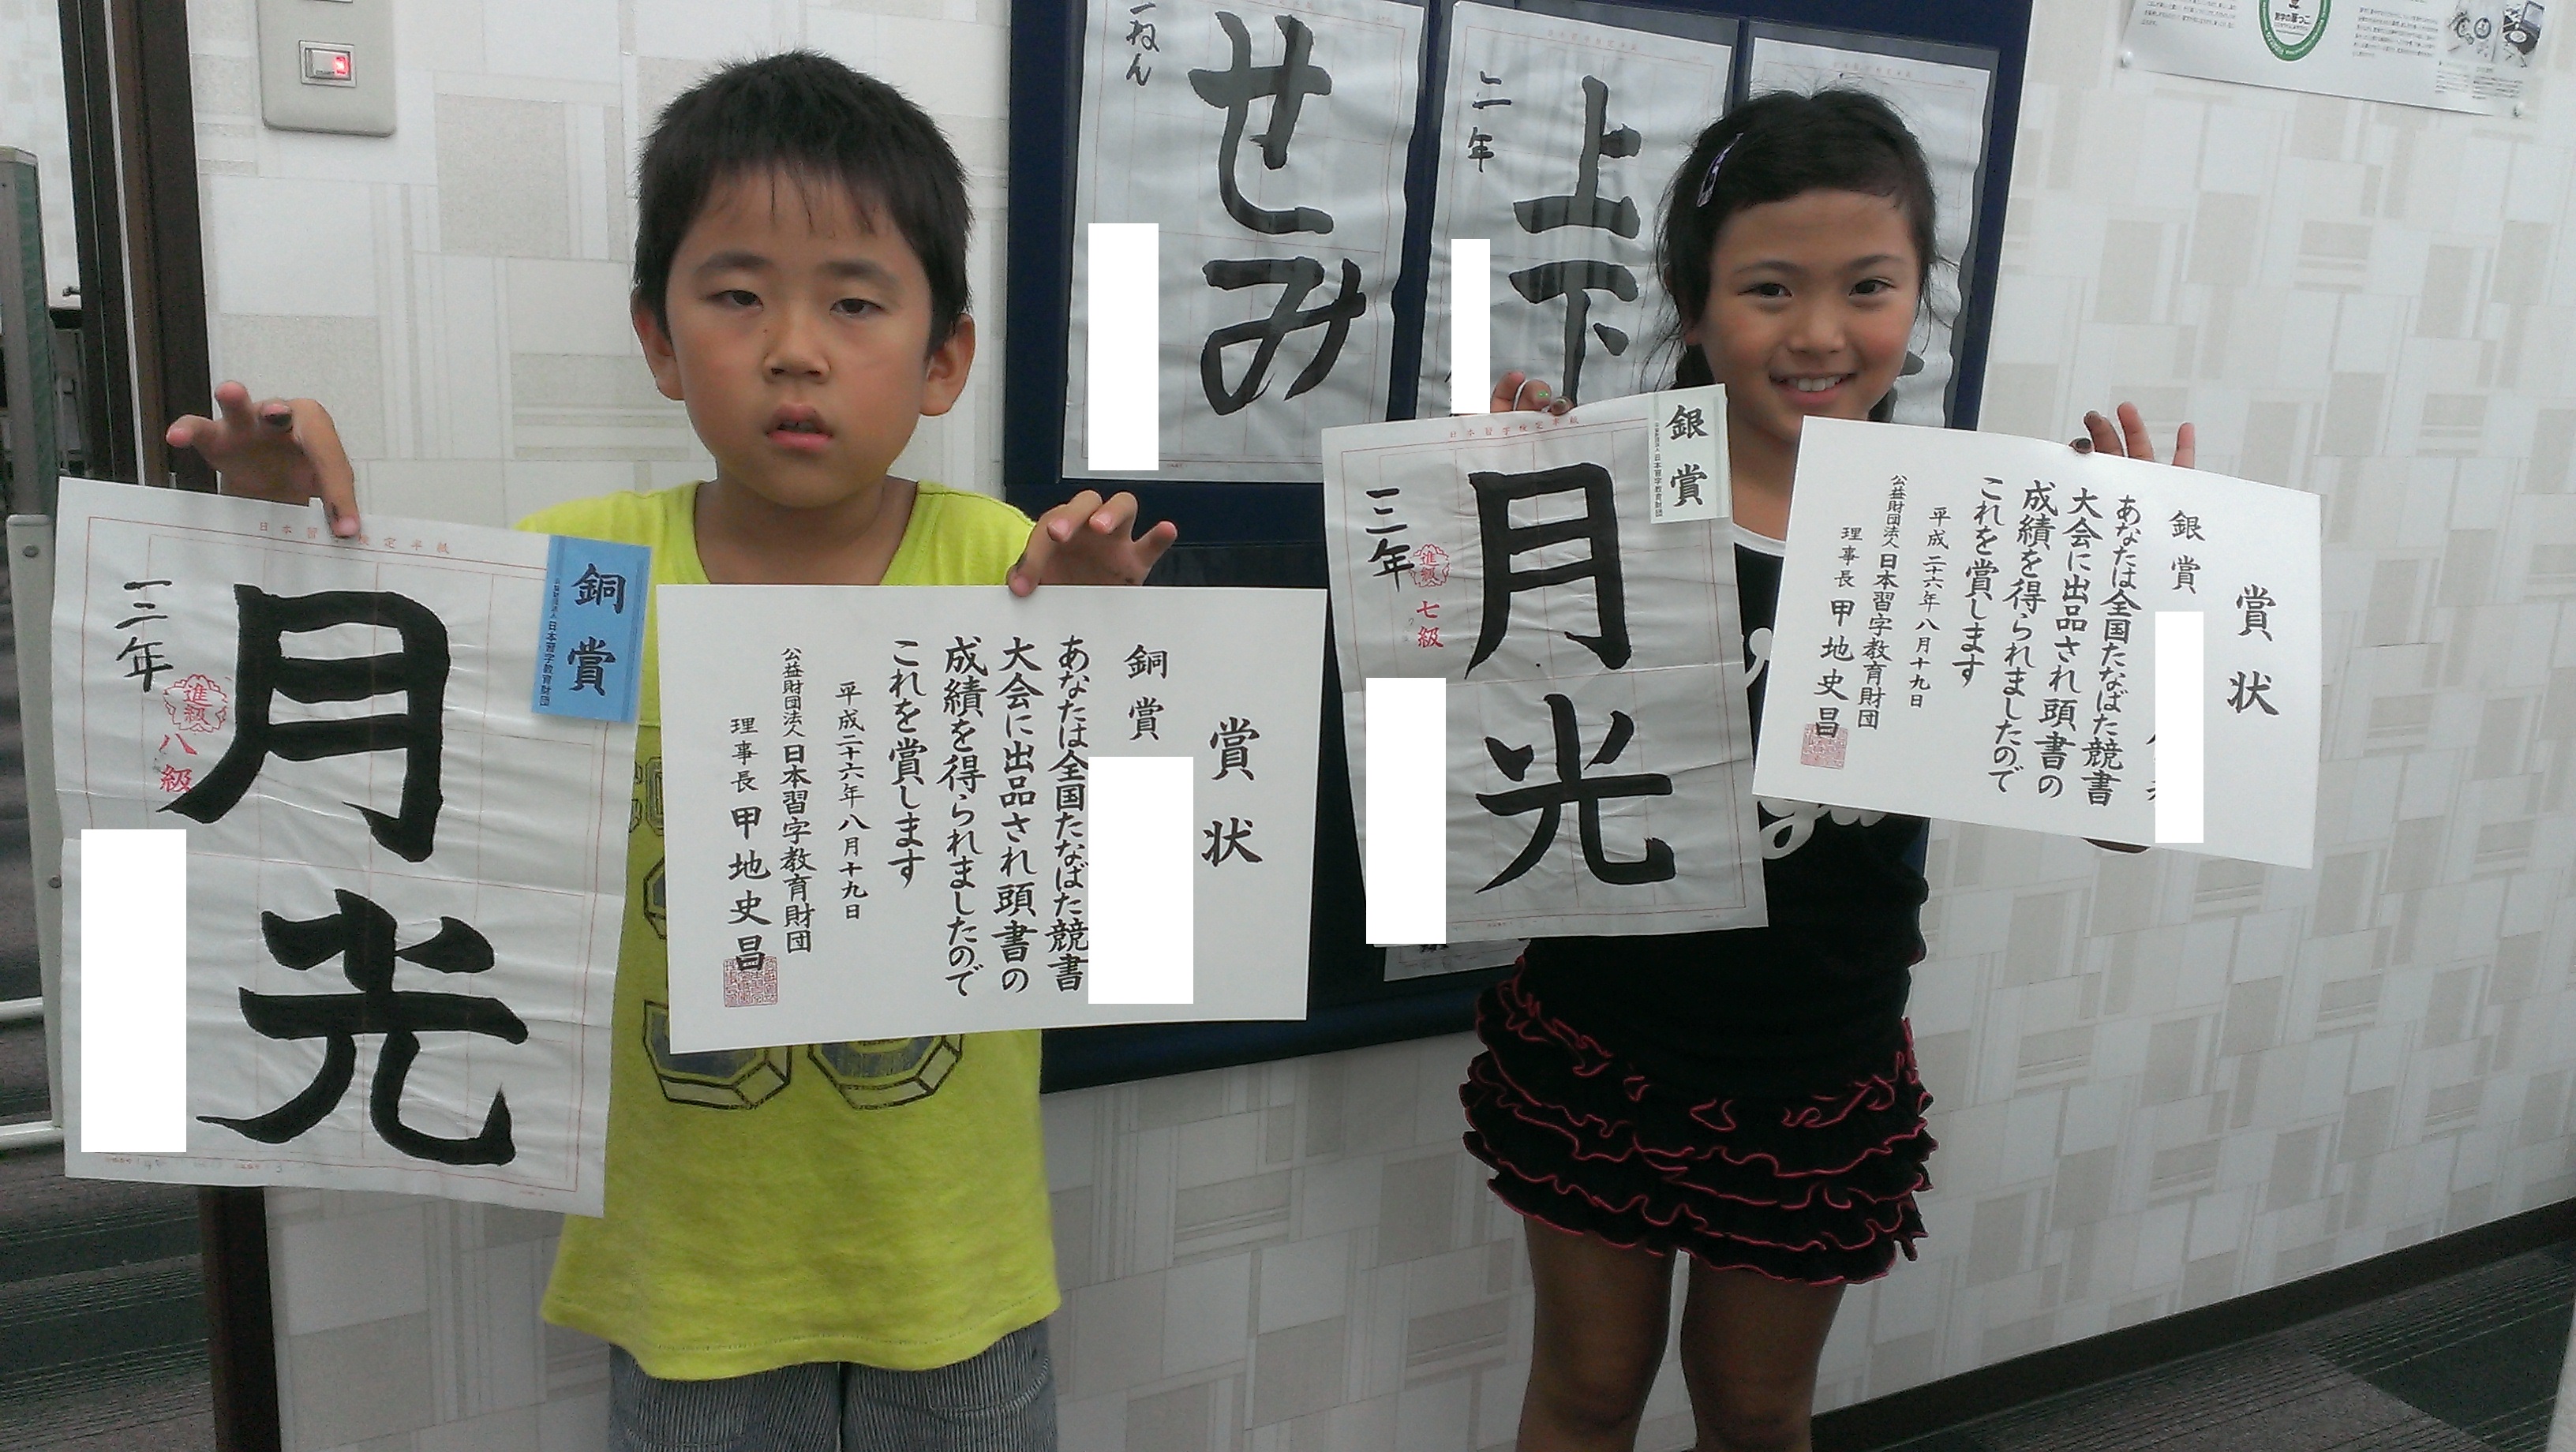 一ねん
せみ
二年
上下
習字の筆っこ
日本習字検定半紙
銅賞
公益財団法人 日本習字教育財団
月光
三年
進級
八級
賞状
銅賞
あなたは全国たなばた競書
大会に出品され頭書の
成績を得られましたので
これを賞します
平成二十六年八月十九日
公益財団法人 日本習字教育財団
理事長 甲地史昌
日本習字検定半紙
銀賞
公益財団法人 日本習字教育財団
月光
三年
進級
七級
賞状
銀賞
あなたは全国たなばた競書
大会に出品され頭書の
成績を得られましたので
これを賞します
平成二十六年八月十九日
公益財団法人 日本習字教育財団
理事長 甲地史昌